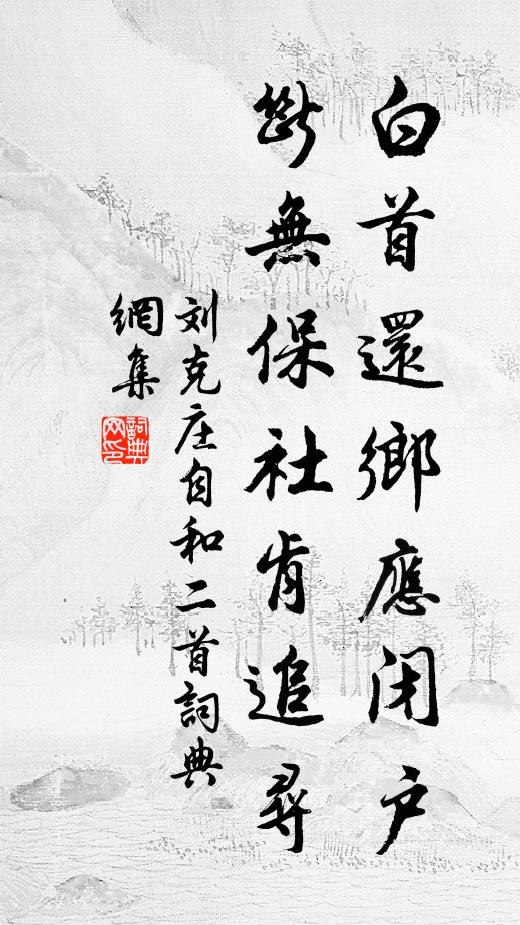 白首還鄉應闭户
斷無保社肯追尋
刘克庄自和二首詞典
網集
詞典
网印